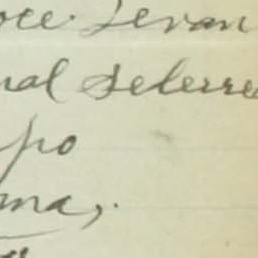 oce. Levan
nal selerre
po
ma,.